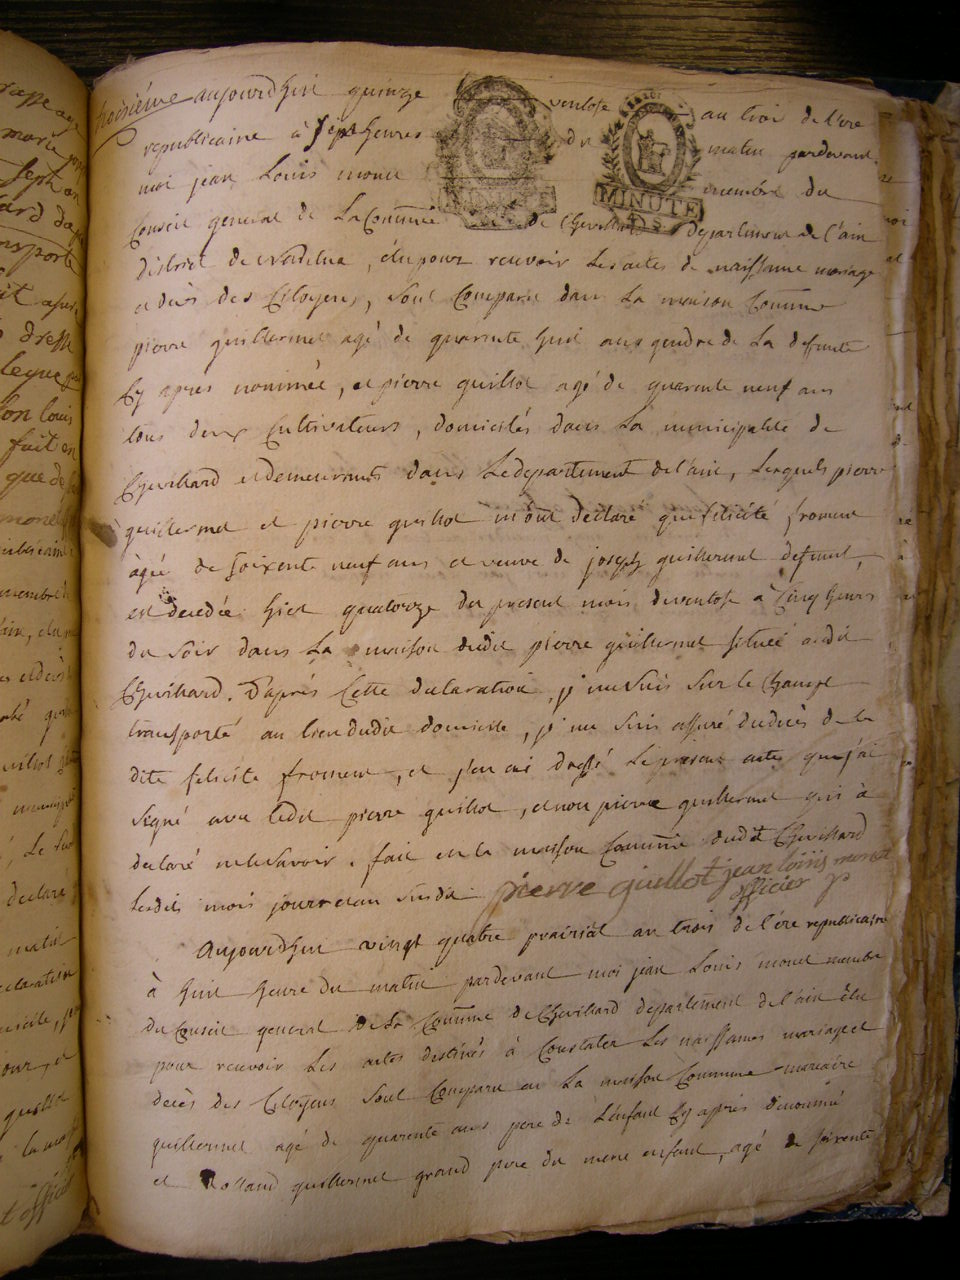 troisiéme aujourdhui quinze ventose au troi de l'ere
republicaine à sept heures du matin pardevant
moi jean Louis monet membre du
MINUTE
Conseil general de La Commune de Chevillard departement de l'ain
district de nantua, élu pour recevoir Les actes de naissance mariage
et décés des Citoyens, sont Comparu dans La maison Commune
pierre guillermet agé de quarente huit ans gendre de La defunte
Cy apres nommée, et pierre guillot agé de quarente neuf ans
tous deux Cultivateurs, domiciliés dans La municipalité de
Chevillard et demeurants dans Le departement de l'ain, Lesquels pierre
guillermet et pierre guillot m'ont declaré que felicité froment
agée de soixente neuf ans et veuve de joseph guillermet defunt,
est decedée hier quatorze du present mois de ventose a Cinq heures
du soir dans La maison dudit pierre guillermet située audit
Chevillard. D'aprés Cette declaration, je me suis sur le Champ
transporté au lieu dudit domicile, je me suis assuré du decés de la
dite felicite froment, et j'en ai dressé Le present acte que j'ai
signé avec Ledit pierre guillot, et non pierre guillermet qui à
declaré ne le savoir. fait en la maison Commune dudit Chevillard
Lesdits mois jour et an susdit pierre guillot jean loüis monet
officier
Aujourdhui vingt quatre prairial an trois de l'ére republicaine
à huit heure du matin pardevant moi jean Louis monet membre
du Conseil general de La Commune de Chevillard departement de l'ain élu
pour recevoir Les actes destinés à Constater Les naissances mariage et
décès des Citoyens sont Comparu en La maison Commune
guillermet agé de quarente ans pere de L'enfant Cy aprés denommé
et Rolland guillermet grand pere du meme enfant, agé de soixente